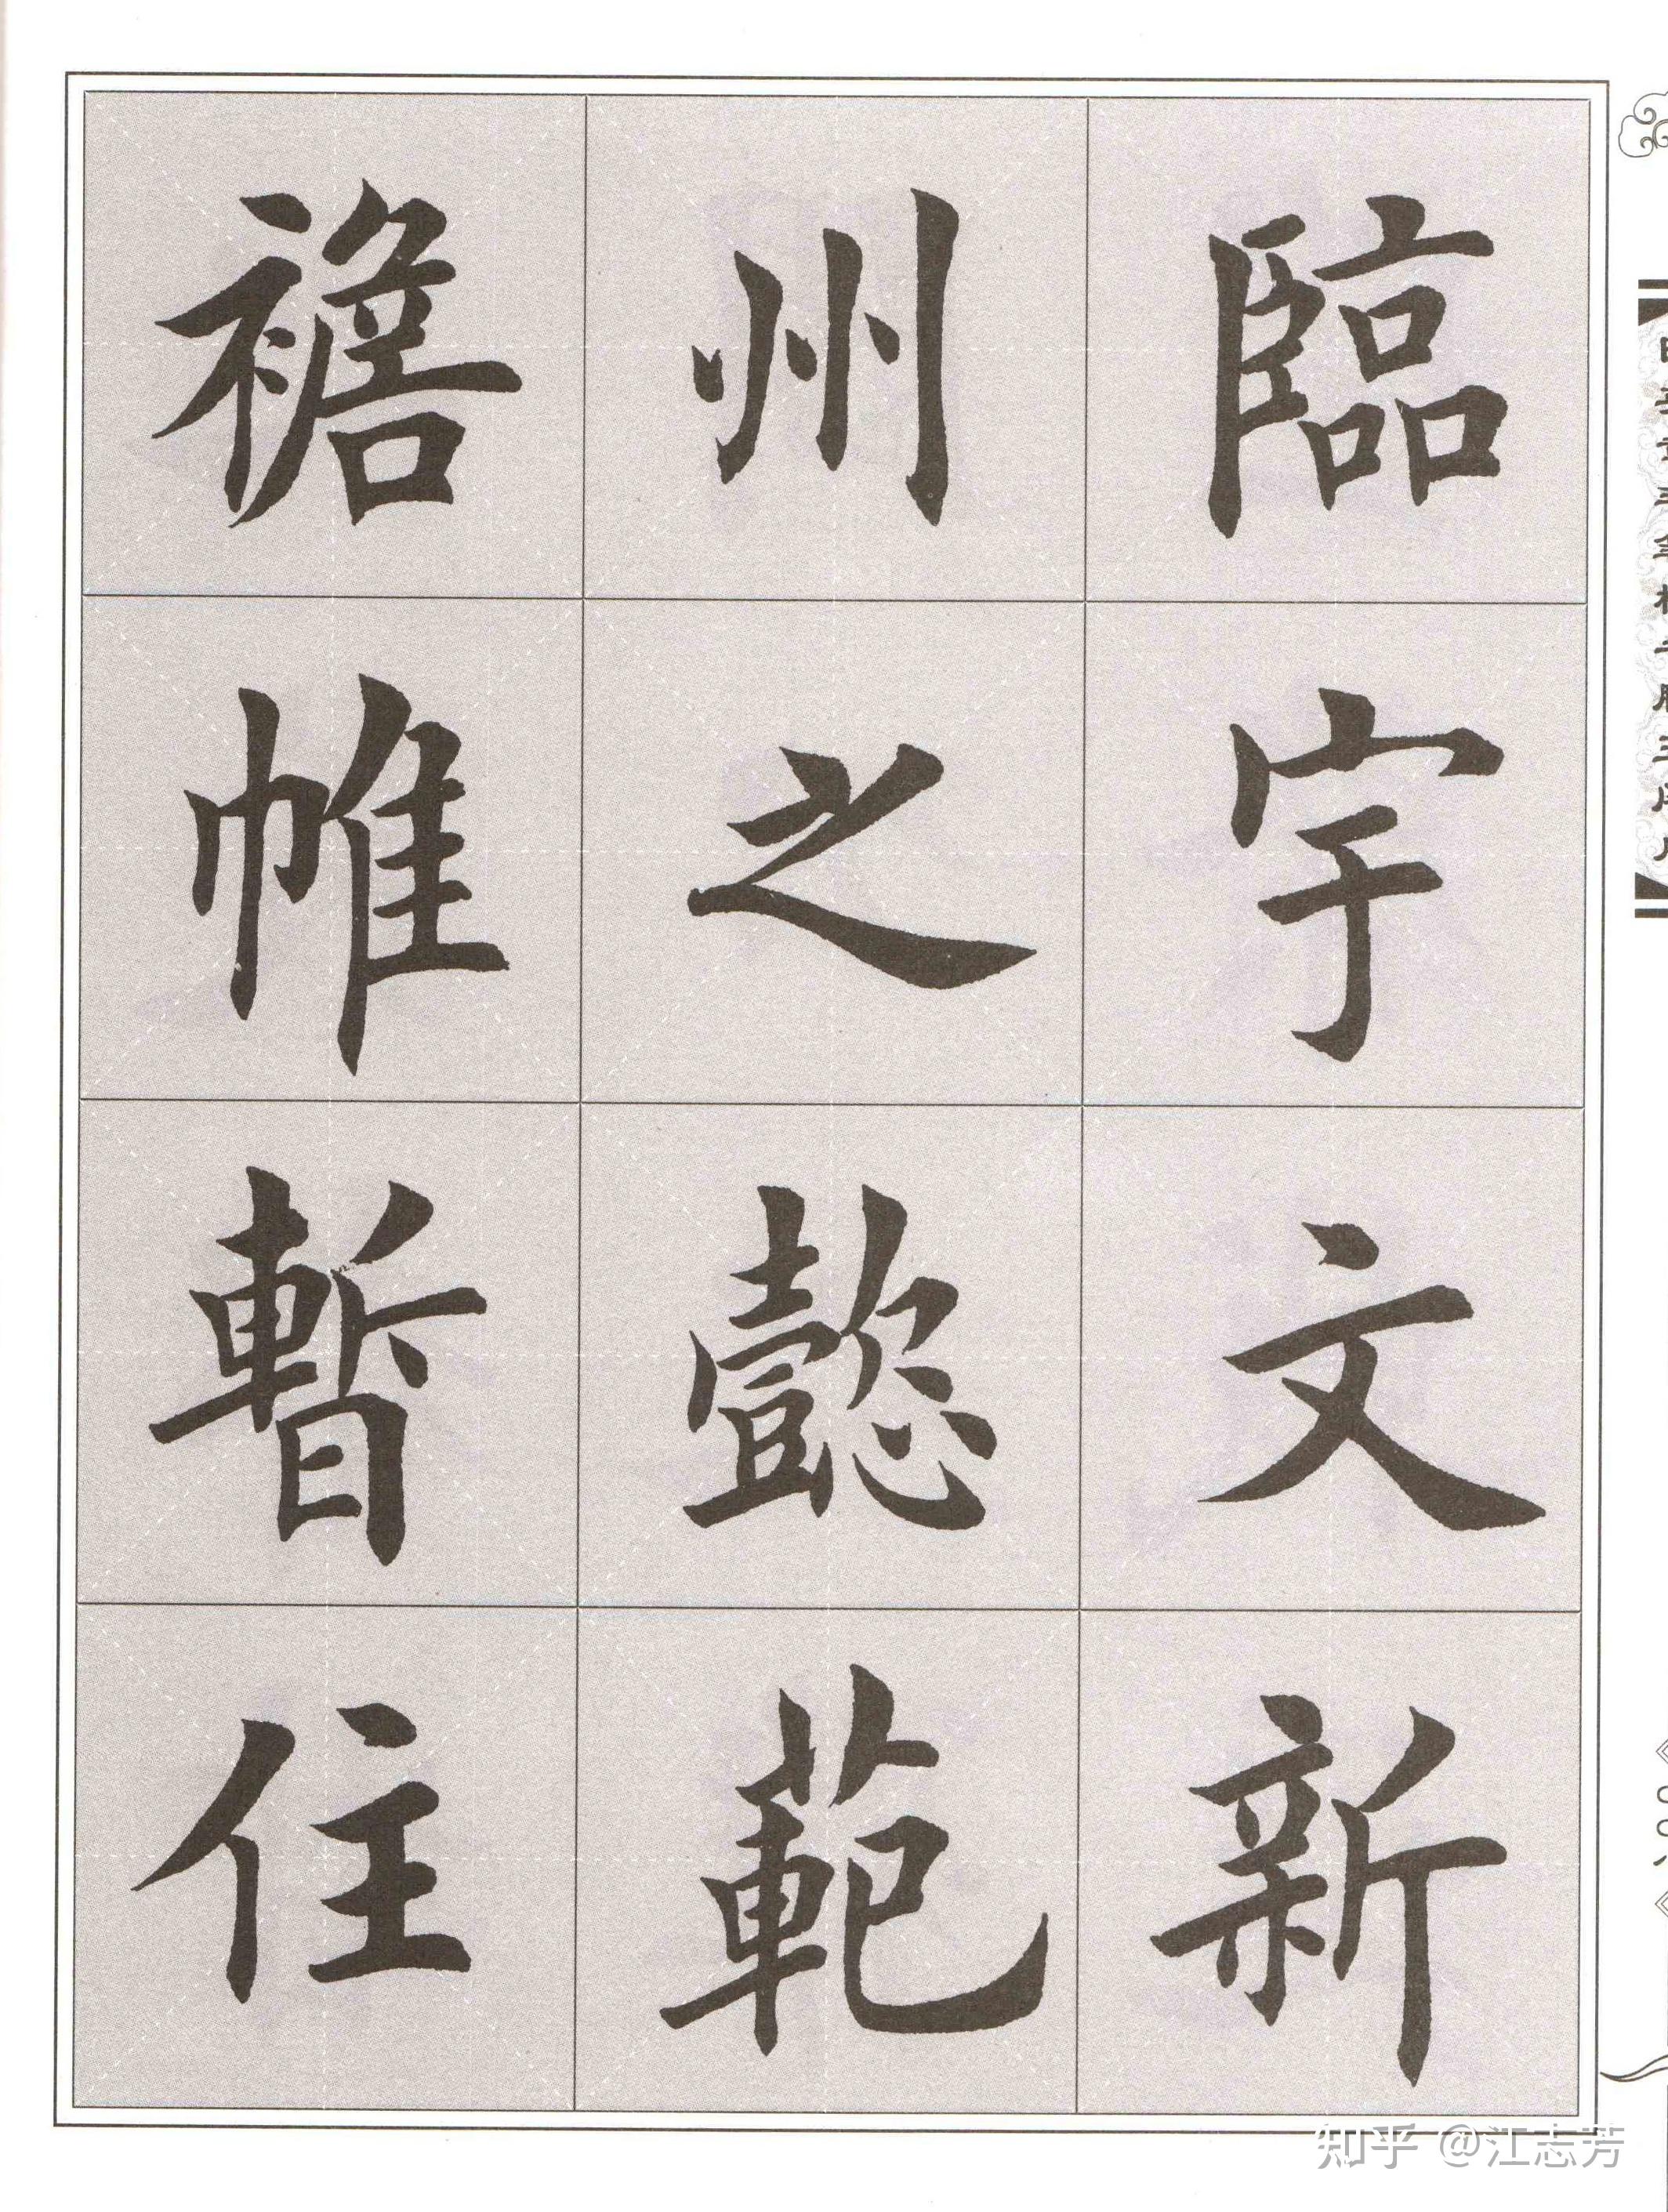 臨宇文新
州之懿範
襜帷暫住
知乎 @江志芳